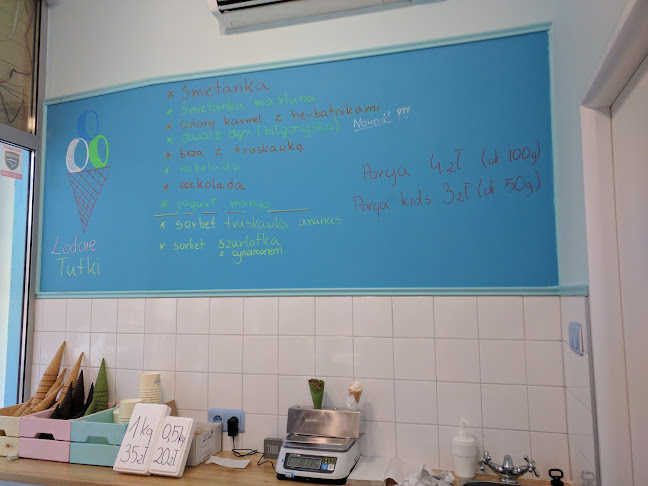 * śmietanka
* śmietanka maślana
* solony karmel z herbatnikami
z dyni (biłgorajska)
Nowość ???
* beza z truskawką
* czekolada
* czekolada
* jogurt mango
* sorbet truskawka ananas
* sorbet szarlotka
z cynamonem
Porcja 4zł (ok 100g)
Porcja kids 3zł (ok 50g)
Lodove
Tutki
1kg
35zł
0,5kg
20zł